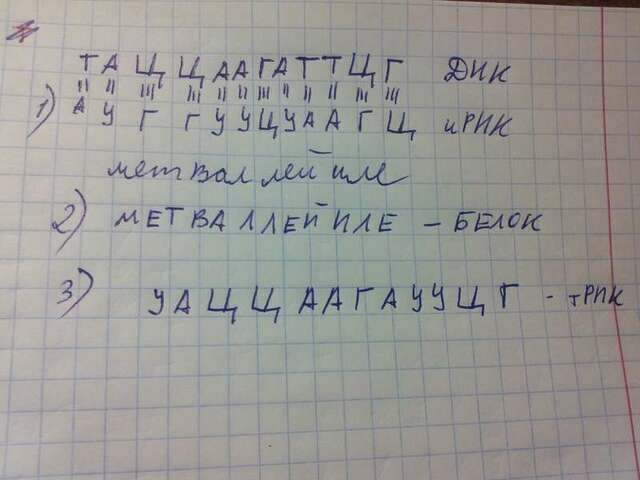 ТАЦЦААГАТТЦГ ДНК
1) АУГГУУЦУААГЦ иРНК
метваллейиле
2) МЕТВАЛЛЕЙИЛЕ – БЕЛОК
3) УАЦЦААГАУУЦГ - тРНК